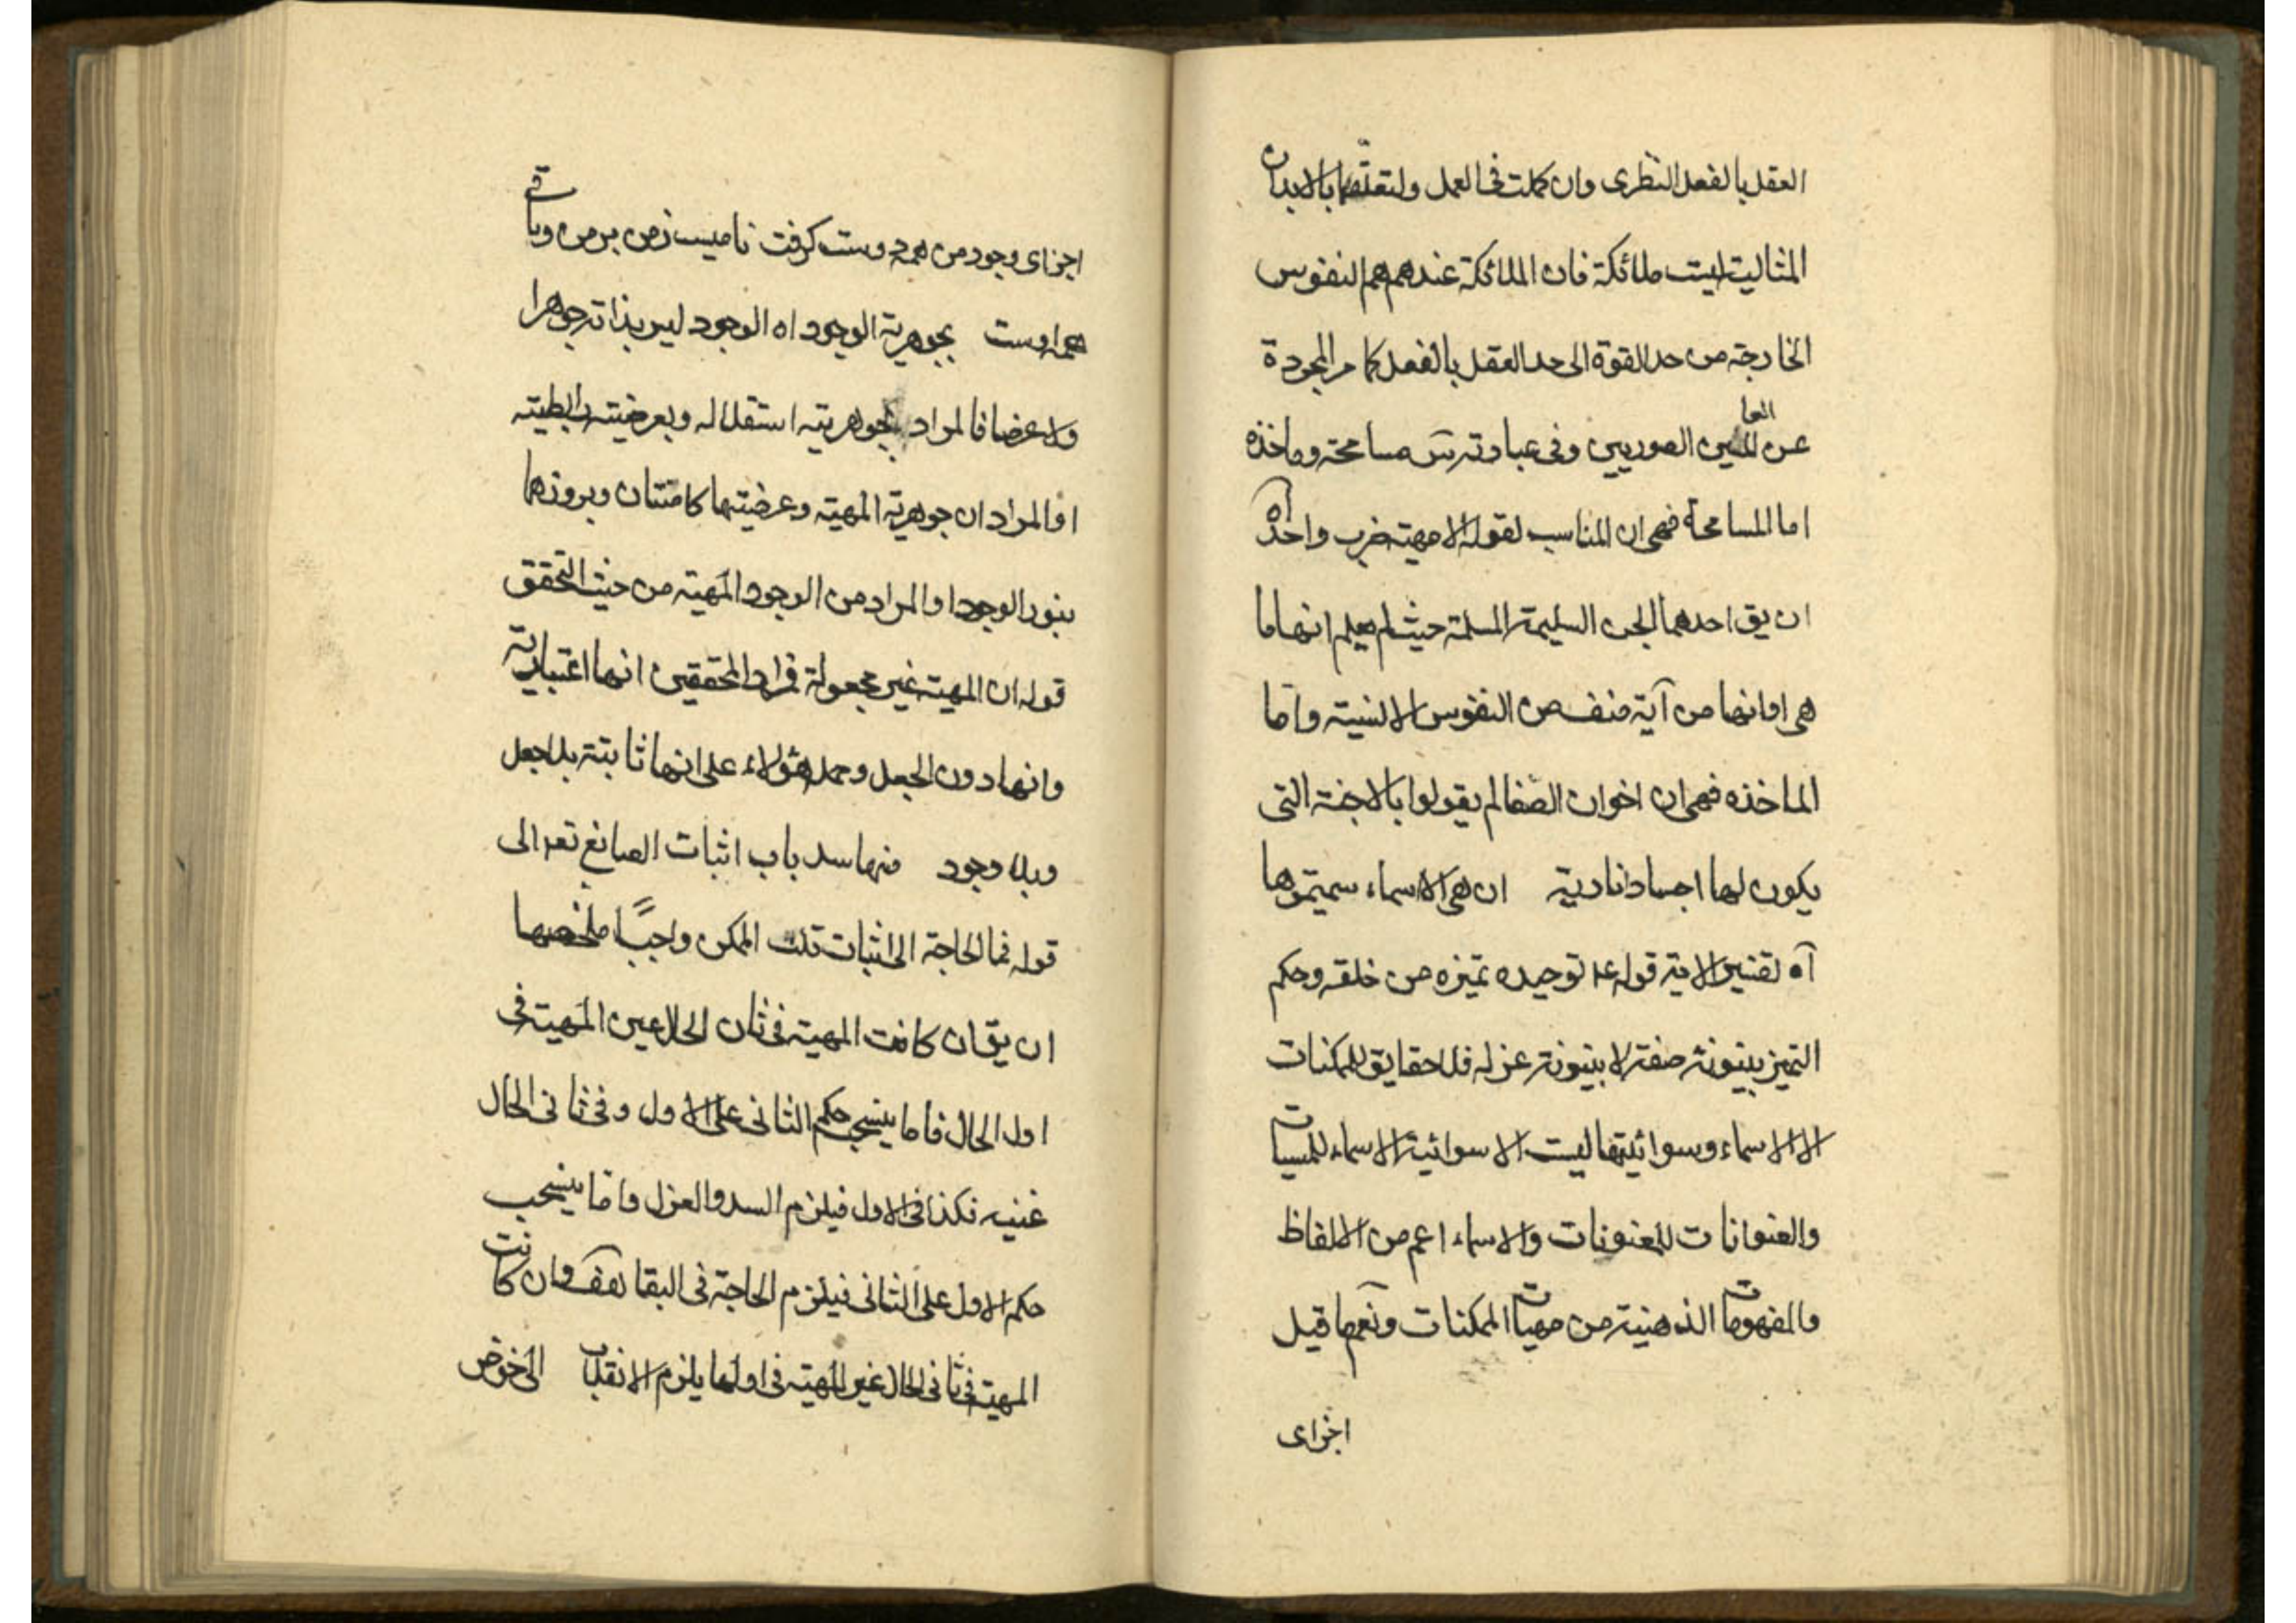 العقل بالفعل النظرى وان كملت فى العمل ولتعلقها بالابدان
المثالية ليست ملائكة فان الملائكة عندهم هم النفوس
الخارجة من حد القوة الى حد العقل بالفعل كما مر المجردة
عن العالمين الصوريين وفى عبارته س مسامحة وماخذه
اما المسامحة فهى ان المناسب لقوله الامهية ضرب واحد آه
ان يق احدهما الجن السليمة المسلمة حيث لم يعلم انها ما
هى او انها من آية صنف من النفوس الانسية واما
الماخذه فهى ان اخوان الصفا لم يقولوا بالاجنة التى
يكون لها اجساد نارية ان هى الا اسماء سميتموها
آه تفسير الاية قوله ع توحيده تميزه من خلقه وحكم
التميز بينونة صفة لا بينونة عزلة فلا حقايق للمكنات
الا الاسماء وسوائيتها ليست الا سوائية الاسماء للمسميات
والعنوانات للمعنونات والاسماء اعم من الالفاظ
والمفهومات الذهنية من مهيات الممكنات ونعم ما قيل
اجزاى
اجزاى وجود من همه دوست كرفت ناميست زمن بر من وباقى
همه اوست بجوهرية الوجود اه الوجود ليس بذاته جوهرا
ولا عرضا فالمراد بجوهريته استقلاله وبعرضيته رابطيته
او المراد ان جوهرية المهية وعرضيتها كامنتان وبروزهما
بنور الوجود او المراد من الوجود المهية من حيث التحقق
قوله ان المهية غير مجعولة فمراد المحققين انها اعتبارية
وانها دون الجعل وحمل هؤلاء على انها ثابتة بلا جعل
وبلا وجود منها سد باب اثبات الصانع تعالى
قوله فما الحاجة الى اثبات تلك الممكن واجبا ملخصها
ان يق ان كانت المهية فى ثان الحال عين المهية فى
اول الحال فاما ينسحب حكم الثانى على الاول وفى ثانى الحال
غنيه فكذا فى الاول فيلزم السد والعزل واما ينسحب
حكم الاول على الثانى فيلزم الحاجة فى البقا هف وان كانت
المهية فى ثانى الحال غير المهية فى اولها يلزم الانقلاب الى خوض